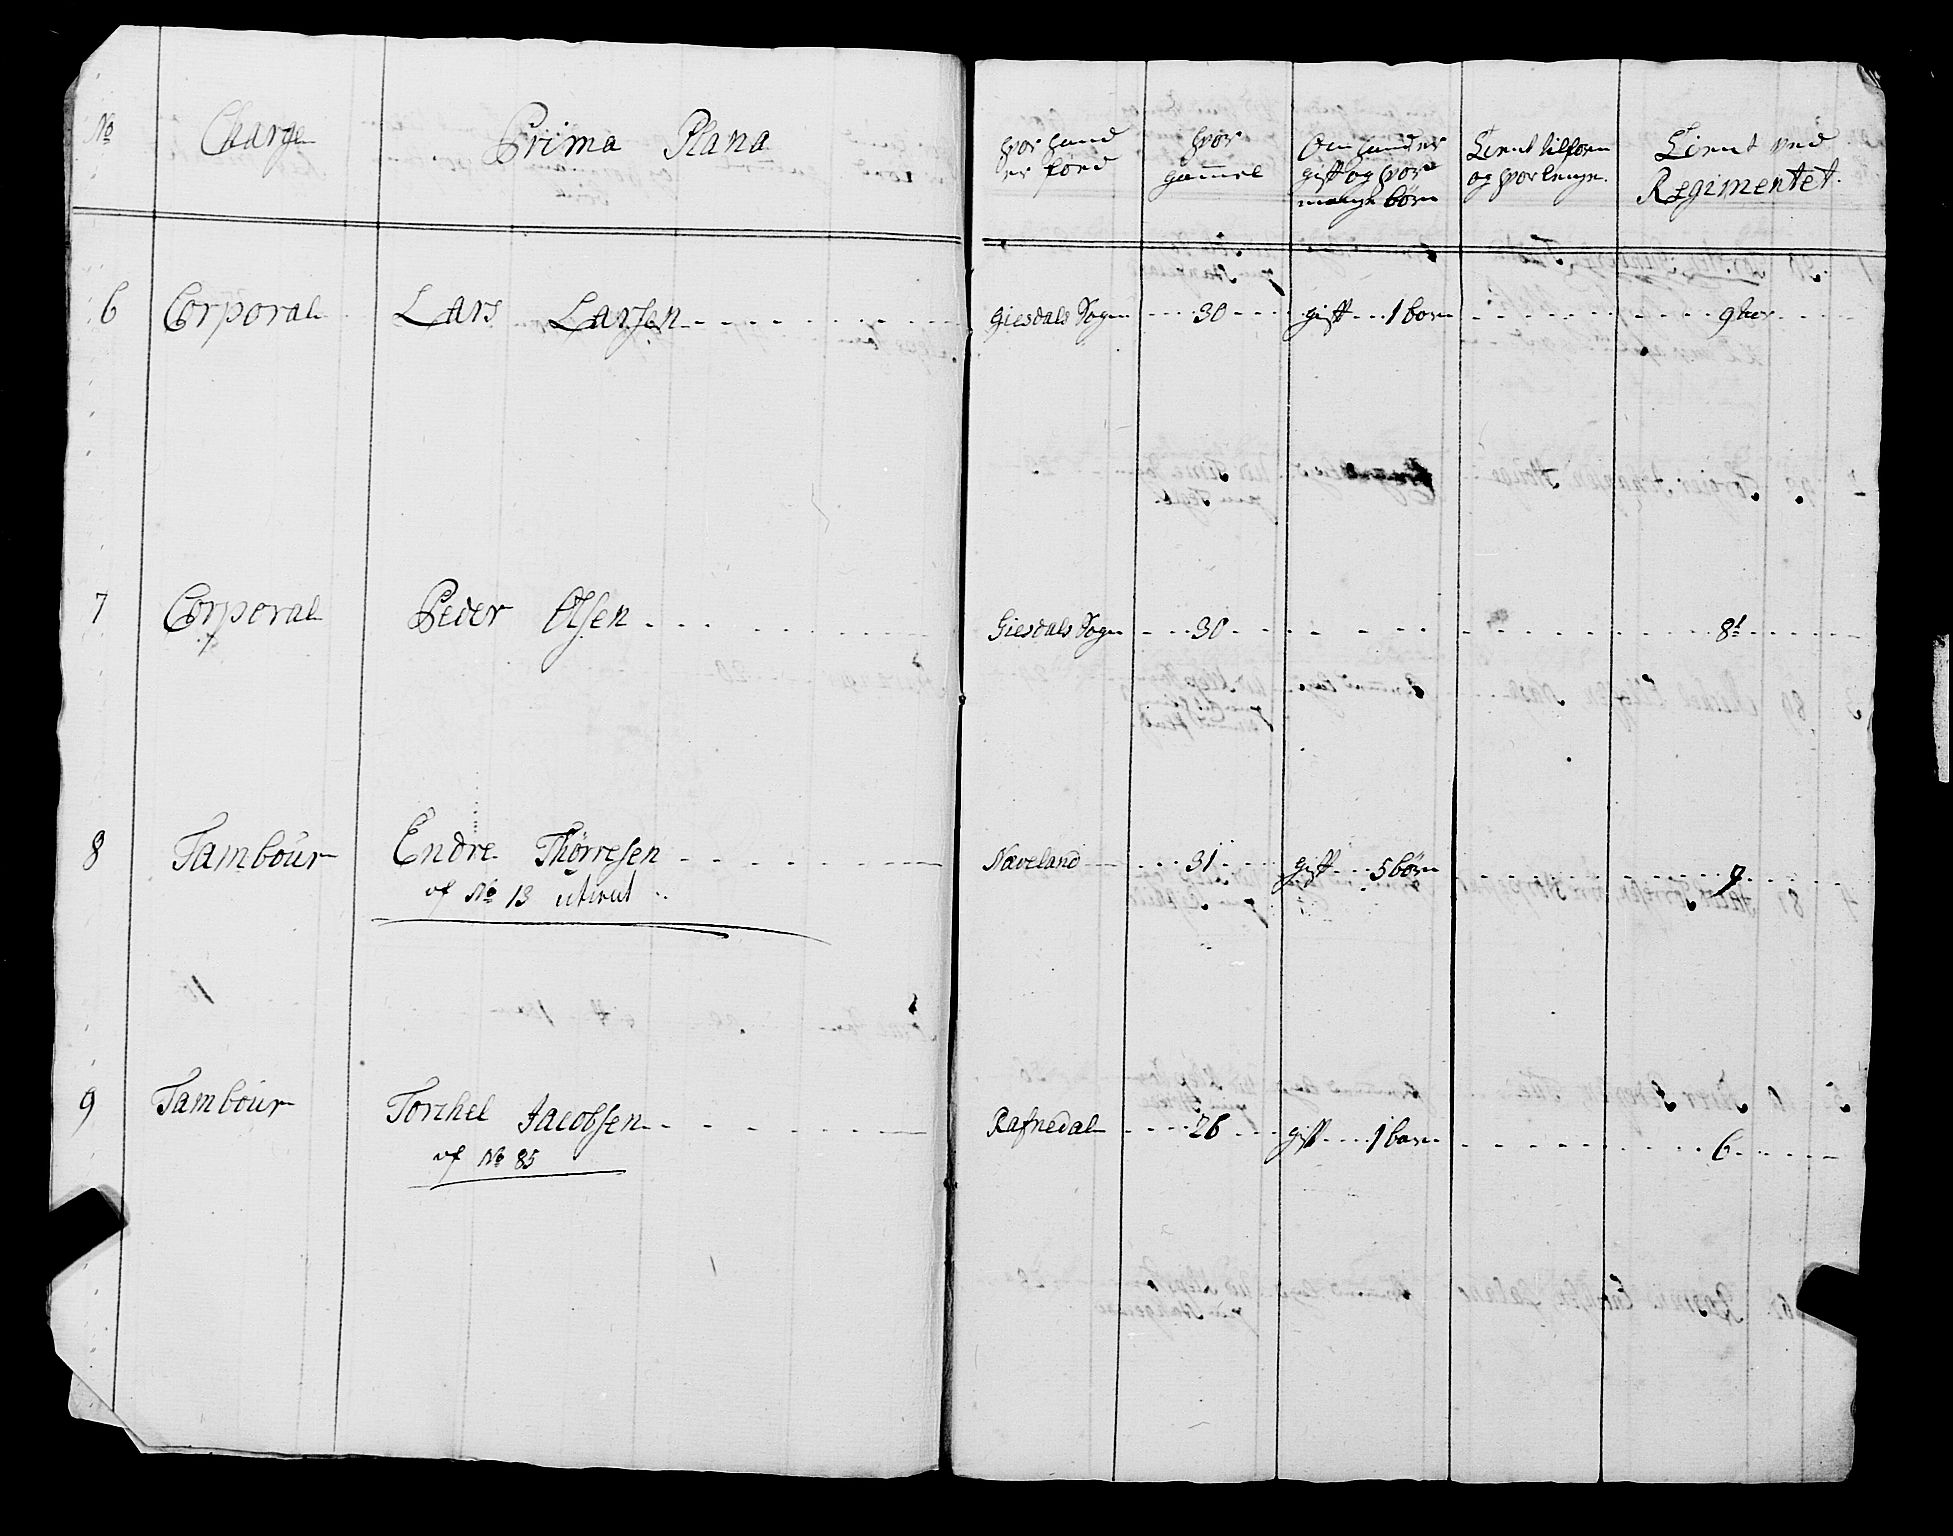 No Charge Prima Plana hvor hand er föed hvor gammel Om hand er gift og hvor mange börn Tient tilforn og hvor lenge. Tient ved Regimentet.
6 Corporal Lars Larsen Giesdals Sogn 30 gift 1 barn 9
7 Corporal Peder Olsen Giesdals Sogn 30 8
8 Tambour Endre Thörresen Naveland 31 gift 5 börn 9
af No 13
9 Tambour Torchel Jacobsen Rafnedal 26 gift 1 barn 6
af No 85